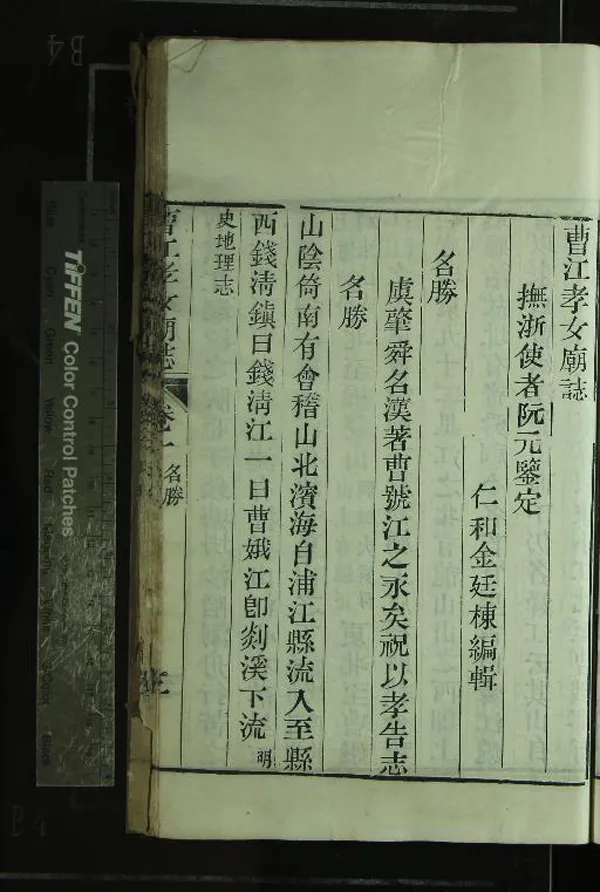 曹江孝女廟誌
撫浙使者阮元鑒定
仁和金廷棟編輯
名勝
虞肇舜名漢著曹號江之永矣祝以孝告志
名勝
山陰倚南有會稽山北濱海自浦江縣流入至縣
西錢淸鎮曰錢淸江一曰曹娥江卽剡溪下流 明
史地理志
曹江孝女廟誌 卷一 名勝
TIFFEN Color Control Patches
Blue
Cyan
Green
Yellow
Red
Black
B4
B4